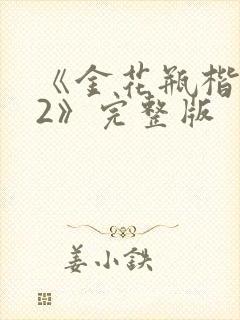 《金花瓶楷
2》完整版
姜小鉄